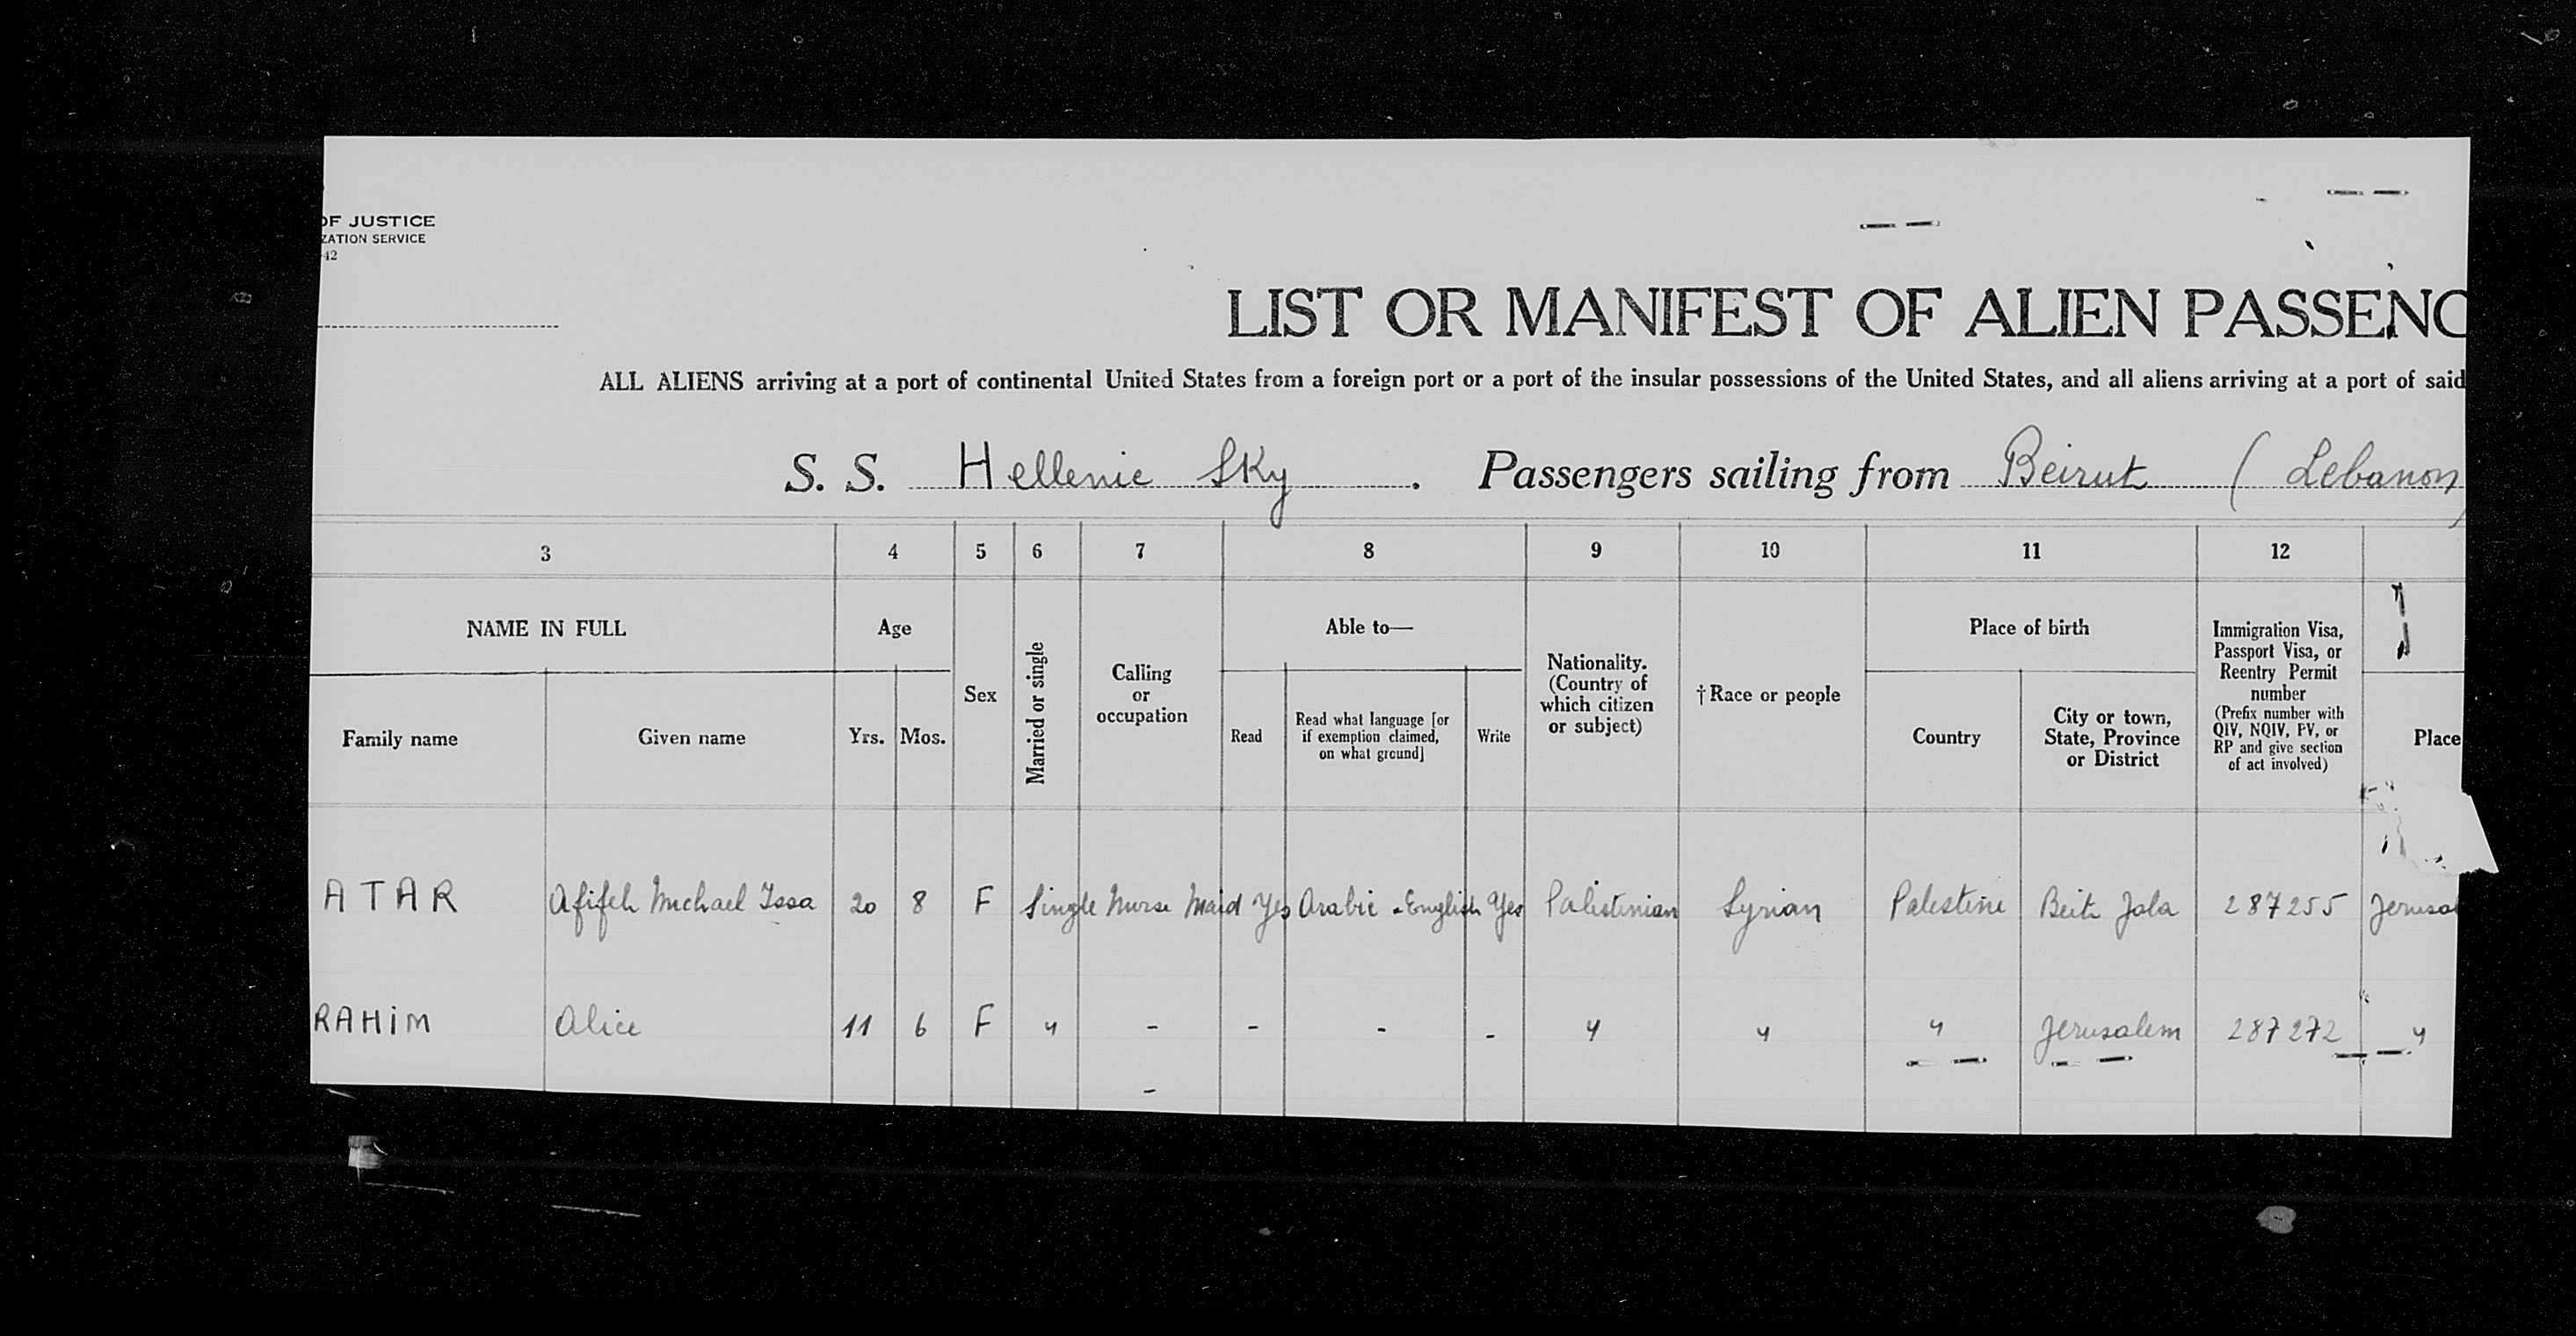 OF JUSTICE
ZATION SERVICE
42
LIST OR MANIFEST OF ALIEN PASSENG
ALL ALIENS arriving at a port of continental United States from a foreign port or a port of the insular possessions of the United States, and all aliens arriving at a port of said
S. S. Hellenic Sky . Passengers sailing from Beirut ( Lebanon)
3 4 5 6 7 8 9 10 11 12
NAME IN FULL
Family name
Given name
Age
Yrs.
Mos.
Sex
Married or single
Calling
or
occupation
Able to—
Read
Read what language [or
if exemption claimed,
on what ground]
Write
Nationality.
(Country of
which citizen
or subject)
†Race or people
Place of birth
Country
City or town,
State, Province
or District
Immigration Visa,
Passport Visa, or
Reentry Permit
number
(Prefix number with
QIV, NQIV, PV, or
RP and give section
of act involved)
Place
ATAR Afifeh Michael Issa 20 8 F Single Nurse Maid Yes Arabic - English Yes Palistinian Syrian Palestine Beit Jala 287255 Jerusal
RAHIM Alice 11 6 F " - - - - " " " Jerusalem 287272 "